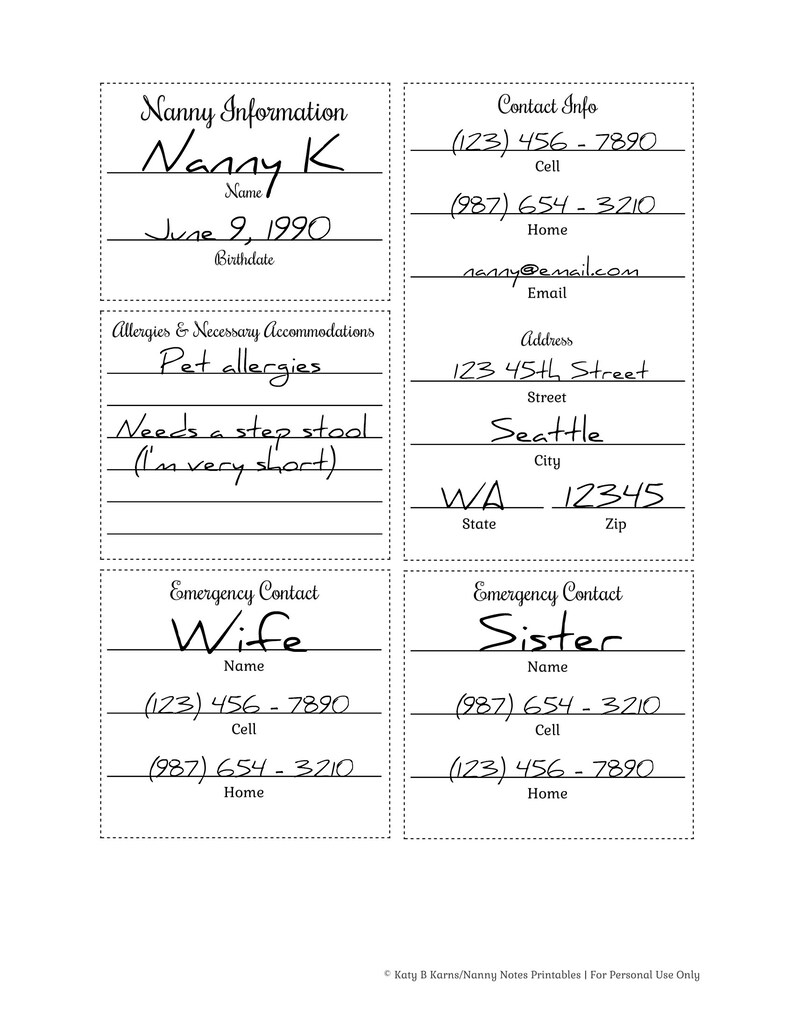 Nanny Information
Nanny K
Name
June 9, 1990
Birthdate
Allergies & Necessary Accommodations
Pet allergies
Needs a step stool
(I'm very short)
Contact Info
(123) 456 - 7890
Cell
(987) 654 - 3210
Home
nanny@email.com
Email
Address
123 45th Street
Street
Seattle
City
WA 12345
State Zip
Emergency Contact
Wife
Name
(123) 456 - 7890
Cell
(987) 654 - 3210
Home
Emergency Contact
Sister
Name
(987) 654 - 3210
Cell
(123) 456 - 7890
Home
© Katy B Karns/Nanny Notes Printables | For Personal Use Only